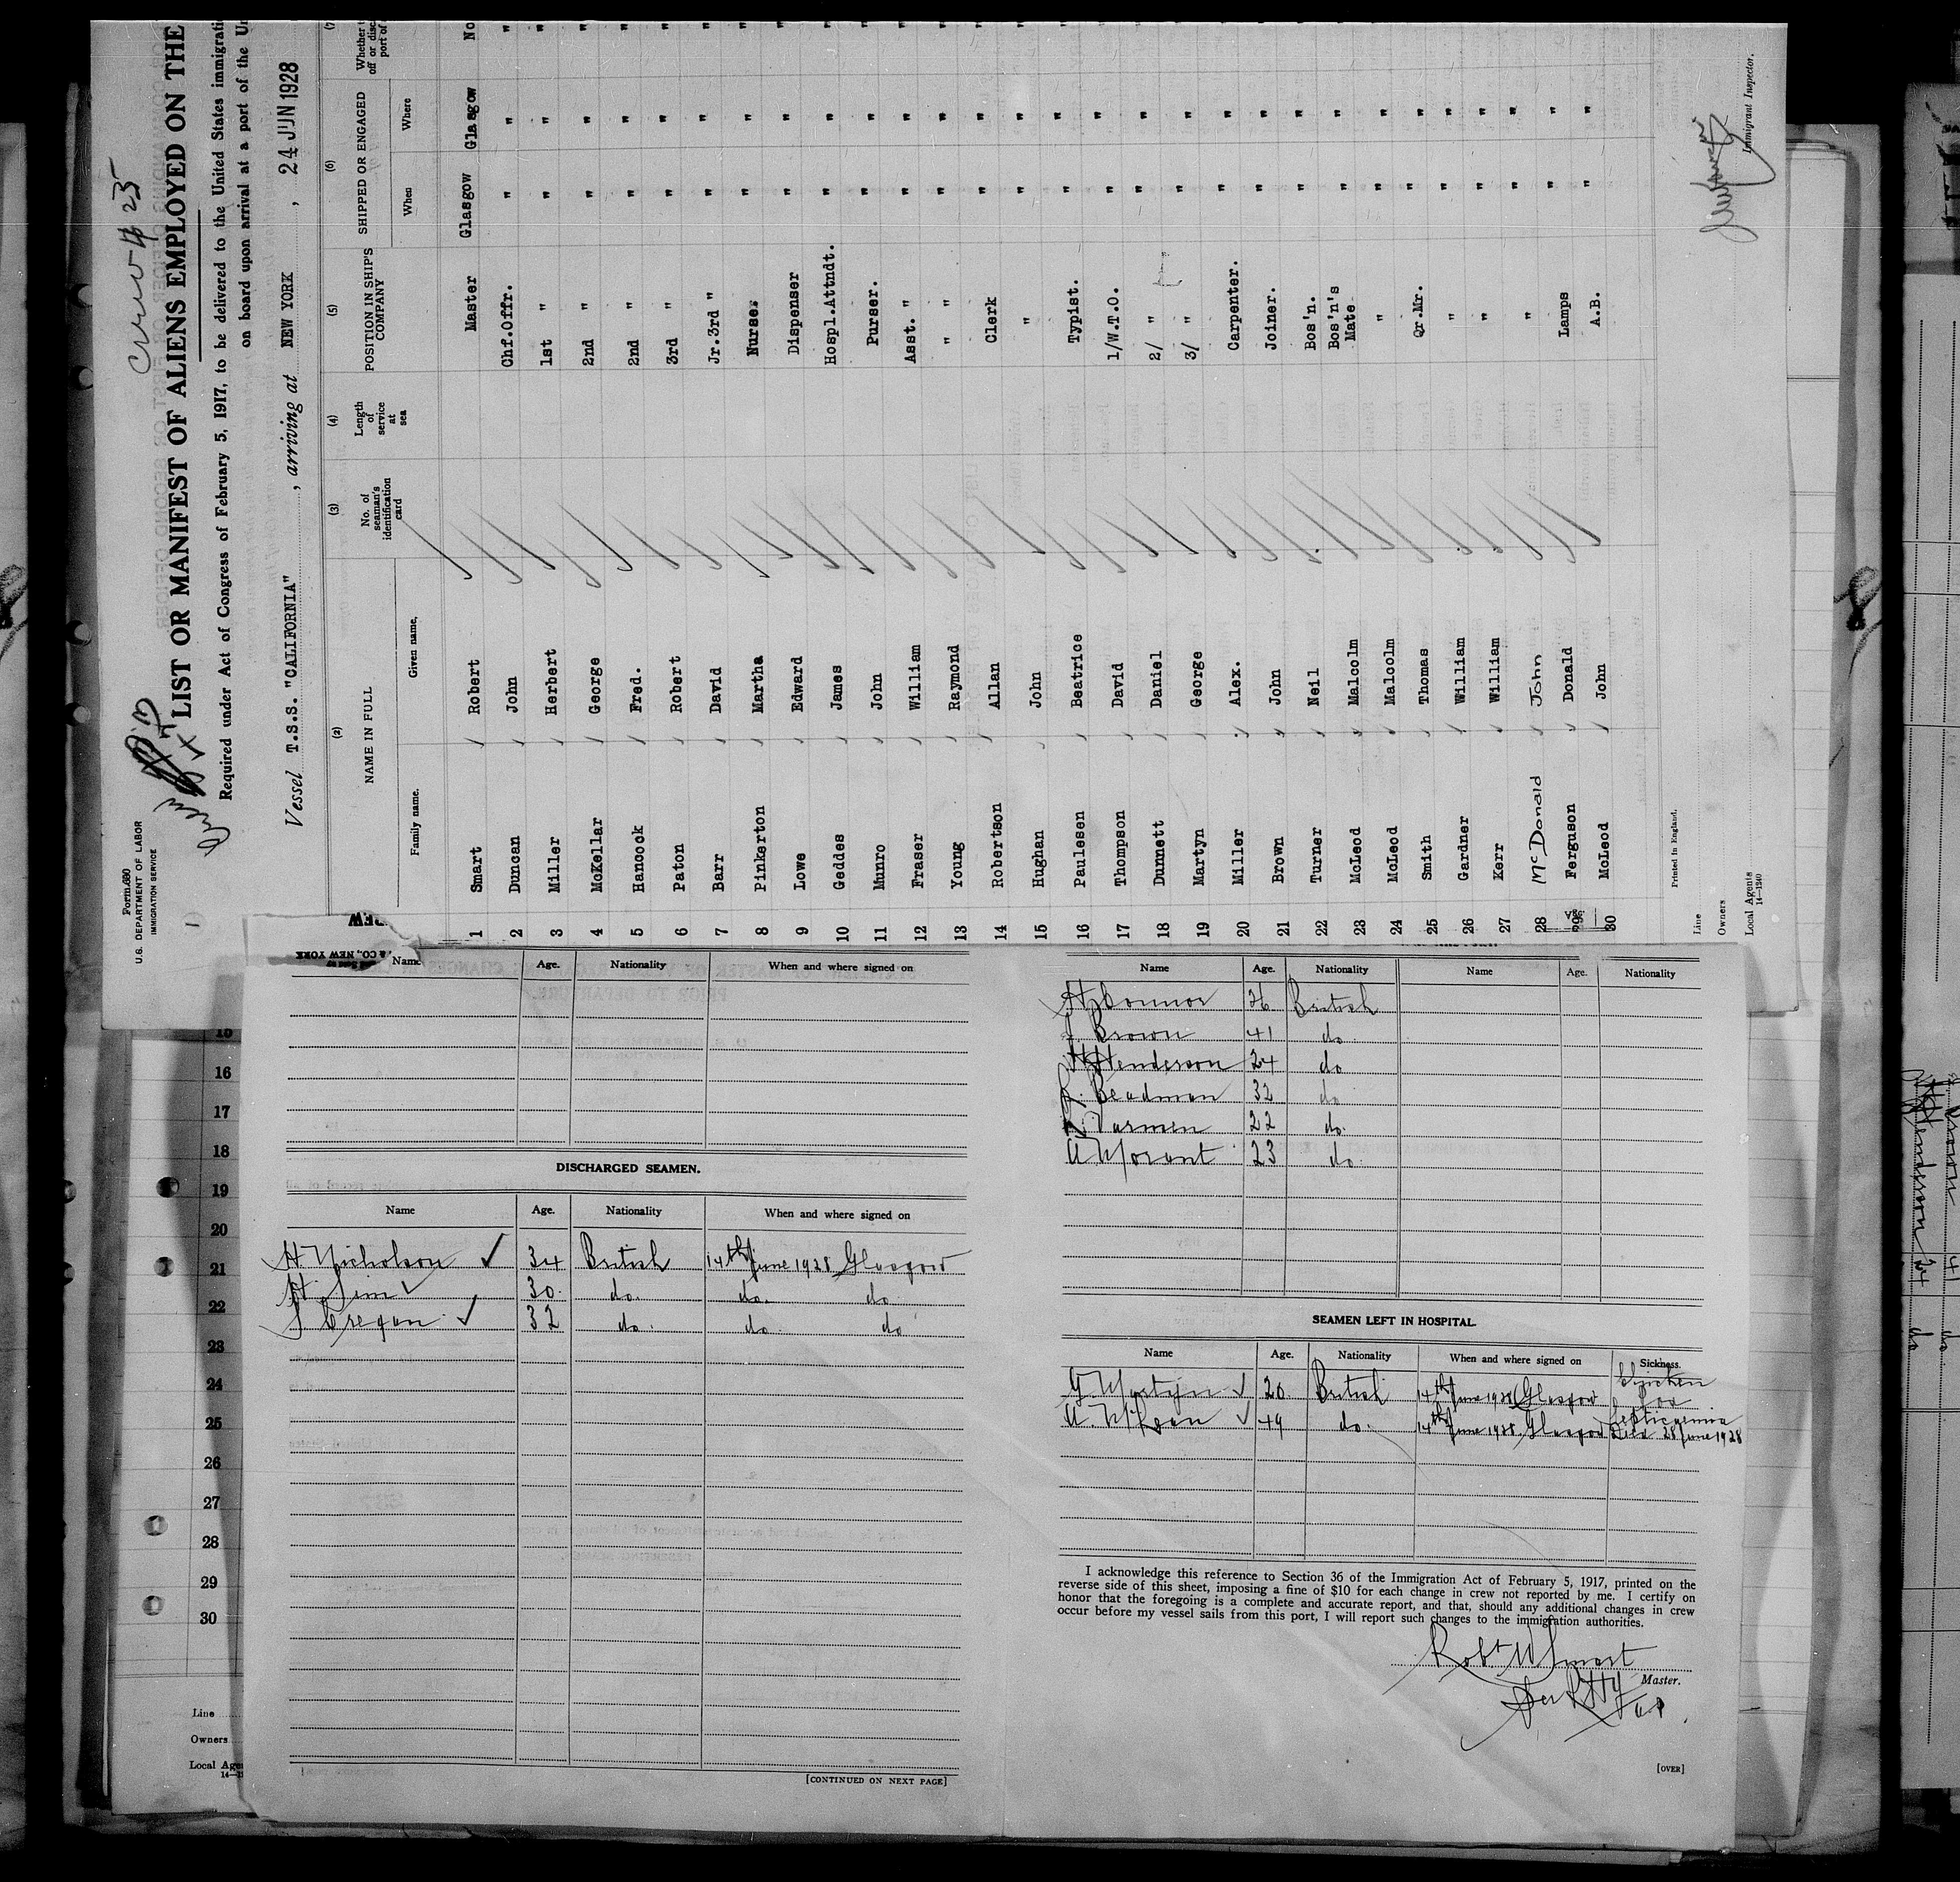 Form 680
U.S. DEPARTMENT OF LABOR
IMMIGRATION SERVICE
Crew # 25
LIST OR MANIFEST OF ALIENS EMPLOYED ON THE
Required under Act of Congress of February 5, 1917, to be delivered to the United States immigrati
on board upon arrival at a port of the Un
Vessel T.S.S. "CALIFORNIA", arriving at NEW YORK, 24 JUN 1928
(2) (3) (4) (5) (6) (7)
NAME IN FULL
Family name. Given name.
No. of seaman's identification card
Length of service at sea
POSITION IN SHIP'S COMPANY
SHIPPED OR ENGAGED
When Where
Whether
off or disc
port of
1 Smart Robert Master Glasgow Glasgow No
2 Duncan John Chf.Offr. " " "
3 Miller Herbert 1st " " " "
4 McKellar George 2nd " " " "
5 Hancock Fred. 2nd " " " "
6 Paton Robert 3rd " " " "
7 Barr David Jr.3rd " " " "
8 Pinkerton Martha Nurse. " " "
9 Lowe Edward Dispenser " " "
10 Geddes James Hospl.Attndt. " " "
11 Munro John Purser. " " "
12 Fraser William Asst. " " " "
13 Young Raymond " " " " "
14 Robertson Allan Clerk " " "
15 Hughan John " " " "
16 Paulesen Beatrice Typist. " " "
17 Thompson David 1/W.T.O. " " "
18 Dunnett Daniel 2/ " " " "
19 Martyn George 3/ " " " "
20 Miller Alex. Carpenter. " " "
21 Brown John Joiner. " " "
22 Turner Neil Bos'n. " " "
23 McLeod Malcolm Bos'n's Mate " " "
24 McLeod Malcolm " " " "
25 Smith Thomas Qr.Mr. " " "
26 Gardner William " " " "
27 Kerr William " " " "
28 McDonald John " " " "
29 Ferguson Donald Lamps " " "
30 McLeod John A.B. " " "
Printed in England.
Line
Owners
Local Agents
14—1240
Immigrant Inspector.
& CO., NEW YORK
Name Age. Nationality When and where signed on
DISCHARGED SEAMEN.
Name Age. Nationality When and where signed on
H. Nicholson ✓ 34 British 14th June 1928 Glasgow
H. Sim ✓ 30 do. do. do
J. Cregan ✓ 32 do. do do
[CONTINUED ON NEXT PAGE]
Name Age. Nationality Name Age. Nationality
Connor 26 British
J. Brown 41 do.
Henderson 24 do
Beadman 32 do
Varmen 22 do.
A Morant 23 do
SEAMEN LEFT IN HOSPITAL.
Name Age. Nationality When and where signed on Sickness.
G. Martyn ✓ 20 British 14th June 1928 Glasgow Chicken Pox
A. McLean ✓ 49 do. 14th June 1928 Glasgow Septicaemia
Died 28 June 1928
I acknowledge this reference to Section 36 of the Immigration Act of February 5, 1917, printed on the
reverse side of this sheet, imposing a fine of $10 for each change in crew not reported by me. I certify on
honor that the foregoing is a complete and accurate report, and that, should any additional changes in crew
occur before my vessel sails from this port, I will report such changes to the immigration authorities.
Robt W Smart
Master.
[OVER]
15
16
17
18
19
20
21
22
23
24
25
26
27
28
29
30
Line
Owners
Local Age
Henderson 24 do